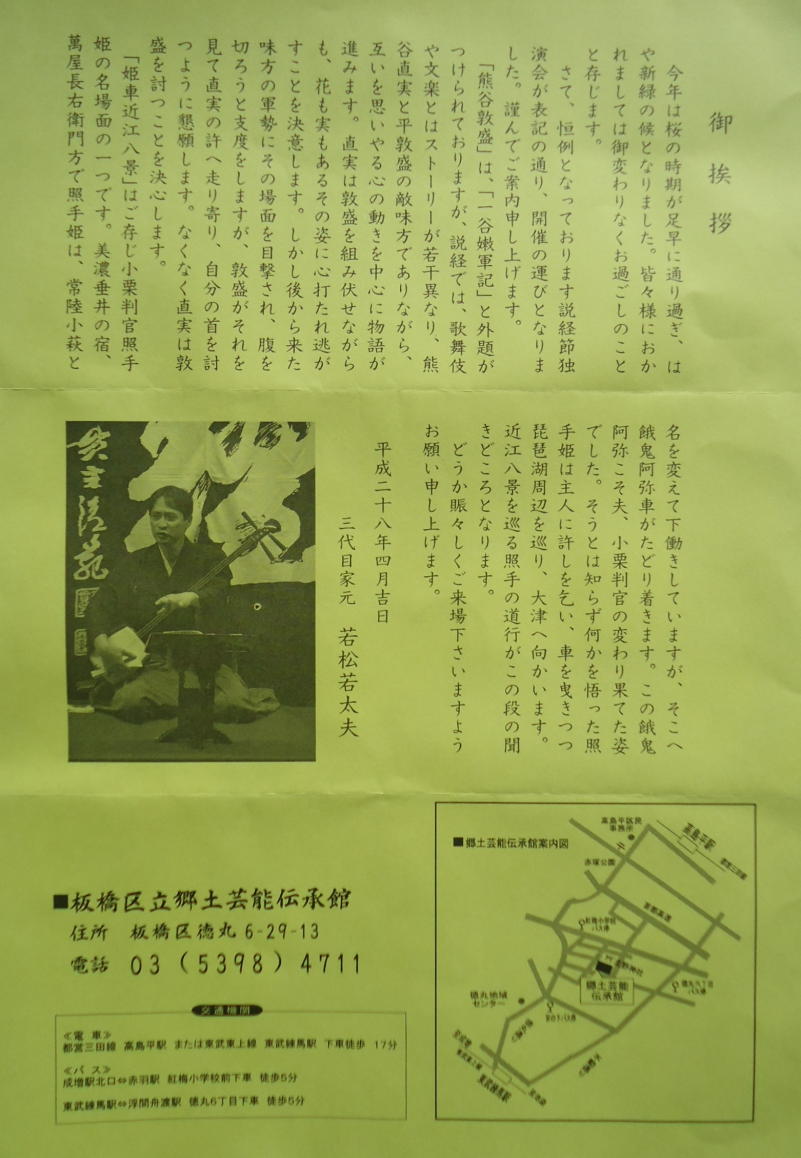 御挨拶
今年は桜の時期が足早に通り過ぎ、は
や新緑の候となりました。皆々様におか
れましては御変わりなくお過ごしのこと
と存じます。
さて、恒例となっております説経節独
演会が表記の通り、開催の運びとなりま
した。謹んでご案内申し上げます。
「熊谷敦盛」は、「一谷嫩軍記」と外題が
つけられておりますが、説経では、歌舞伎
や文楽とはストーリーが若干異なり、熊
谷直実と平敦盛の敵味方でありながら、
互いを思いやる心の動きを中心に物語が
進みます。直実は敦盛を組み伏せながら
も、花も実もあるその姿に心打たれ逃が
すことを決意します。しかし後から来た
味方の軍勢にその場面を目撃され、腹を
切ろうと支度をしますが、敦盛がそれを
見て直実の許へ走り寄り、自分の首を討
つように懇願します。なくなく直実は敦
盛を討つことを決心します。
「姫車近江八景」はご存じ小栗判官照手
姫の名場面の一つです。美濃垂井の宿、
萬屋長右衛門方で照手姫は、常陸小萩と
名を変えて下働きしていますが、そこへ
餓鬼阿弥車がたどり着きます。この餓鬼
阿弥こそ夫、小栗判官の変わり果てた姿
でした。そうとは知らず何かを悟った照
手姫は主人に許しを乞い、車を曳きつつ
琵琶湖周辺を巡り、大津へ向かいます。
近江八景を巡る照手の道行がこの段の聞
きどころとなります。
どうか賑々しくご来場下さいますよう
お願い申し上げます。
平成二十八年四月吉日
三代目家元 若松若太夫
■板橋区立郷土芸能伝承館
住所 板橋区徳丸6-29-13
電話 03(5398)4711
交通機関
≪電車≫
都営三田線 高島平駅 または東武東上線 東武練馬駅 下車徒歩 17分
≪バス≫
成増駅北口⇔赤羽駅 紅梅小学校前下車 徒歩5分
東武練馬駅⇔浮間舟渡駅 徳丸6丁目下車 徒歩5分
■郷土芸能伝承館案内図
高島平区民
事務所
高島平駅
赤塚公園
首都高速
紅梅小学校
バス停
郷土芸能
伝承館
徳丸地域
センター
東武練馬駅